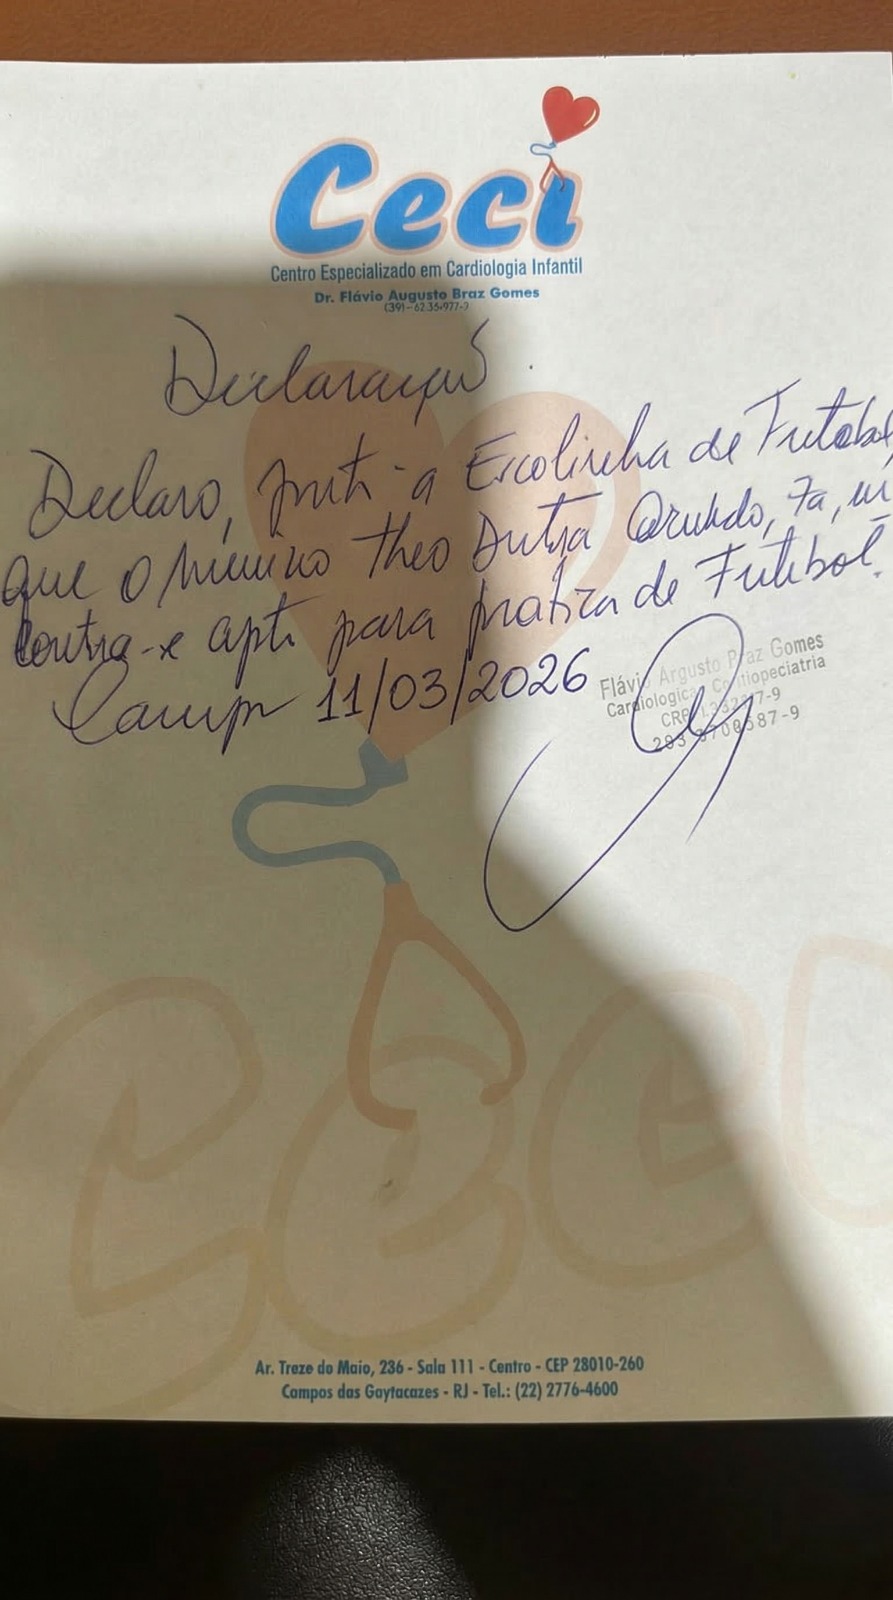 Ceci
Centro Especializado em Cardiologia Infantil
Dr. Flávio Augusto Braz Gomes
(39)-62.35.977-9
Declaração
Declaro, junto a Escolinha de Futebol,
que o menino Theo Dutra 7a, en
contra-se apto para pratica de Futebol.
Campos 11/03/2026
Flávio Argusto Braz Gomes
Cardiologica
Ceci
Ar. Treze do Maio, 236 - Sala 111 - Centro - CEP 28010-260
Campos das Gaytacazes - RJ - Tel.: (22) 2776-4600